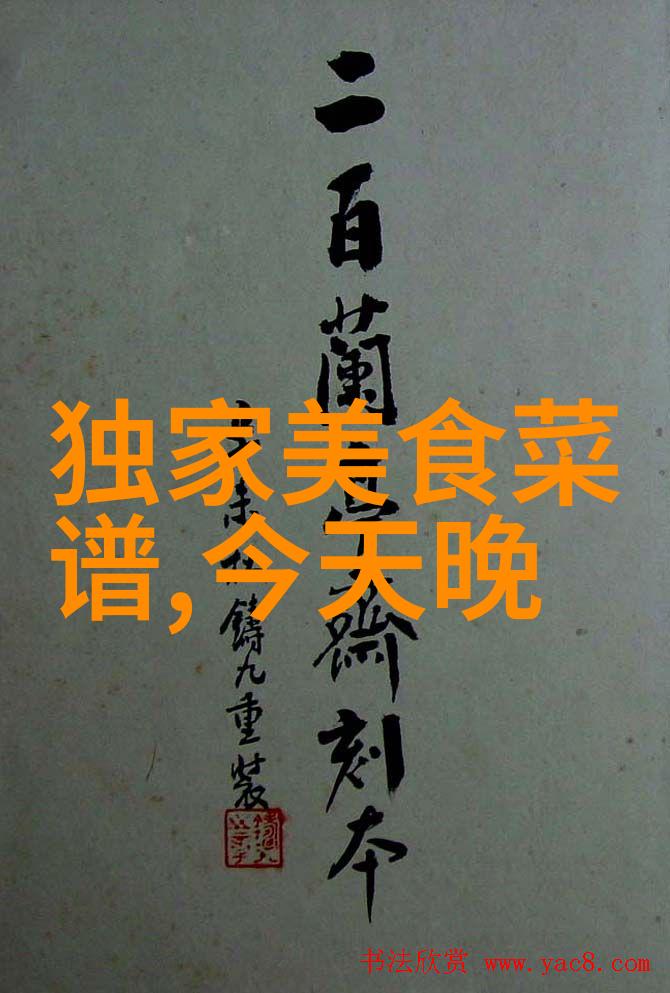 二百蘭亭齋刻本
未鑄九重裝
独家美食菜
谱,今天晚
书法欣赏 www.yac8.com